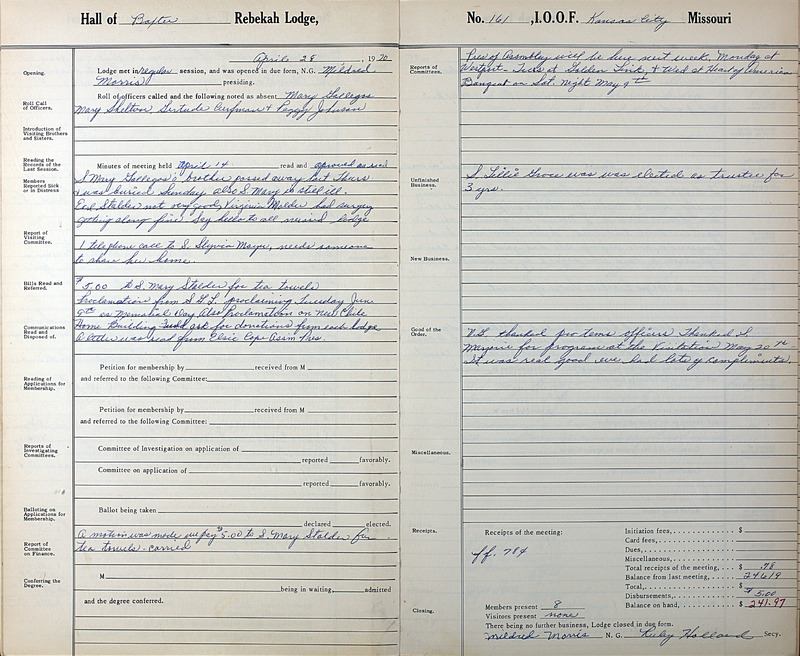 Hall of Baxter Rebekah Lodge,
April 28, 1970
Opening.
Lodge met in regular session, and was opened in due form, N.G. Mildred
Morris presiding.
Roll Call of Officers.
Roll of officers called and the following noted as absent Mary Gallegos
Mary Skelton Gertrude Curfman + Peggy Johnson
Introduction of Visiting Brothers and Sisters.
Reading the Records of the Last Session.
Minutes of meeting held April 14 read and aproved as read
Members Reported Sick or in Distress
S Mary Gallegos's brother passed away last Thurs
+ was buried Sunday also S Mary is still ill.
Stalder not very good, Virginia Molder had surgery
getting along fine. Say hello to all lodge
Report of Visiting Committee.
1 telephone call to S. Mayer, needs someone
to share her home.
Bills Read and Referred.
$5.00 to S. Mary Stalder for tea towels
Proclamation from S.G.L. proclaiming Tuesday Jun
9th as Memorial Day Also Proclamation on New
Communications Read and Disposed of.
Home Building Fund ask for donations from each lodge
A letter was read from Elsie Cope Assm Pres.
Reading of Applications for Membership.
Petition for membership by received from M
and referred to the following Committee:
Petition for membership by received from M
and referred to the following Committee:
Reports of Investigating Committees.
Committee of Investigation on application of
reported favorably.
Committee on application of
reported favorably.
Balloting on Applications for Membership.
Ballot being taken
declared elected.
Report of Committee on Finance
A motion was made we pay $5.00 to S. Mary Stalder for
tea towels - carried
Conferring the Degree.
M
being in waiting, admitted
and the degree conferred.
No. 161, I.O.O.F. Kansas City Missouri
Reports of Committees.
Pres of Assembley will be here next week. Monday at
Westport - Tues at Golden Link, + Wed at Heart of America
Banquet on Sat. Night May 9th
Unfinished Business.
S. Tillie Grove was was elected as trustee for
3 yrs.
New Business.
Good of the Order.
N.G. thanked pro tems officers Thanked S
Marjorie for program at the Visitation May 20th
It was real good we had lots of complements.
Miscellaneous.
Receipts.
Receipts of the meeting:
ff. 78¢
Initiation fees, $
Card fees,
Dues,
Miscellaneous,
Total receipts of the meeting, $ .78
Balance from last meeting, 246.19
Total, $
Disbursements, $5.00
Balance on hand, $ 241.97
Closing.
Members present 8
Visitors present none
There being no further business, Lodge closed in due form.
Mildred Morris N. G. Ruby Holland Secy.